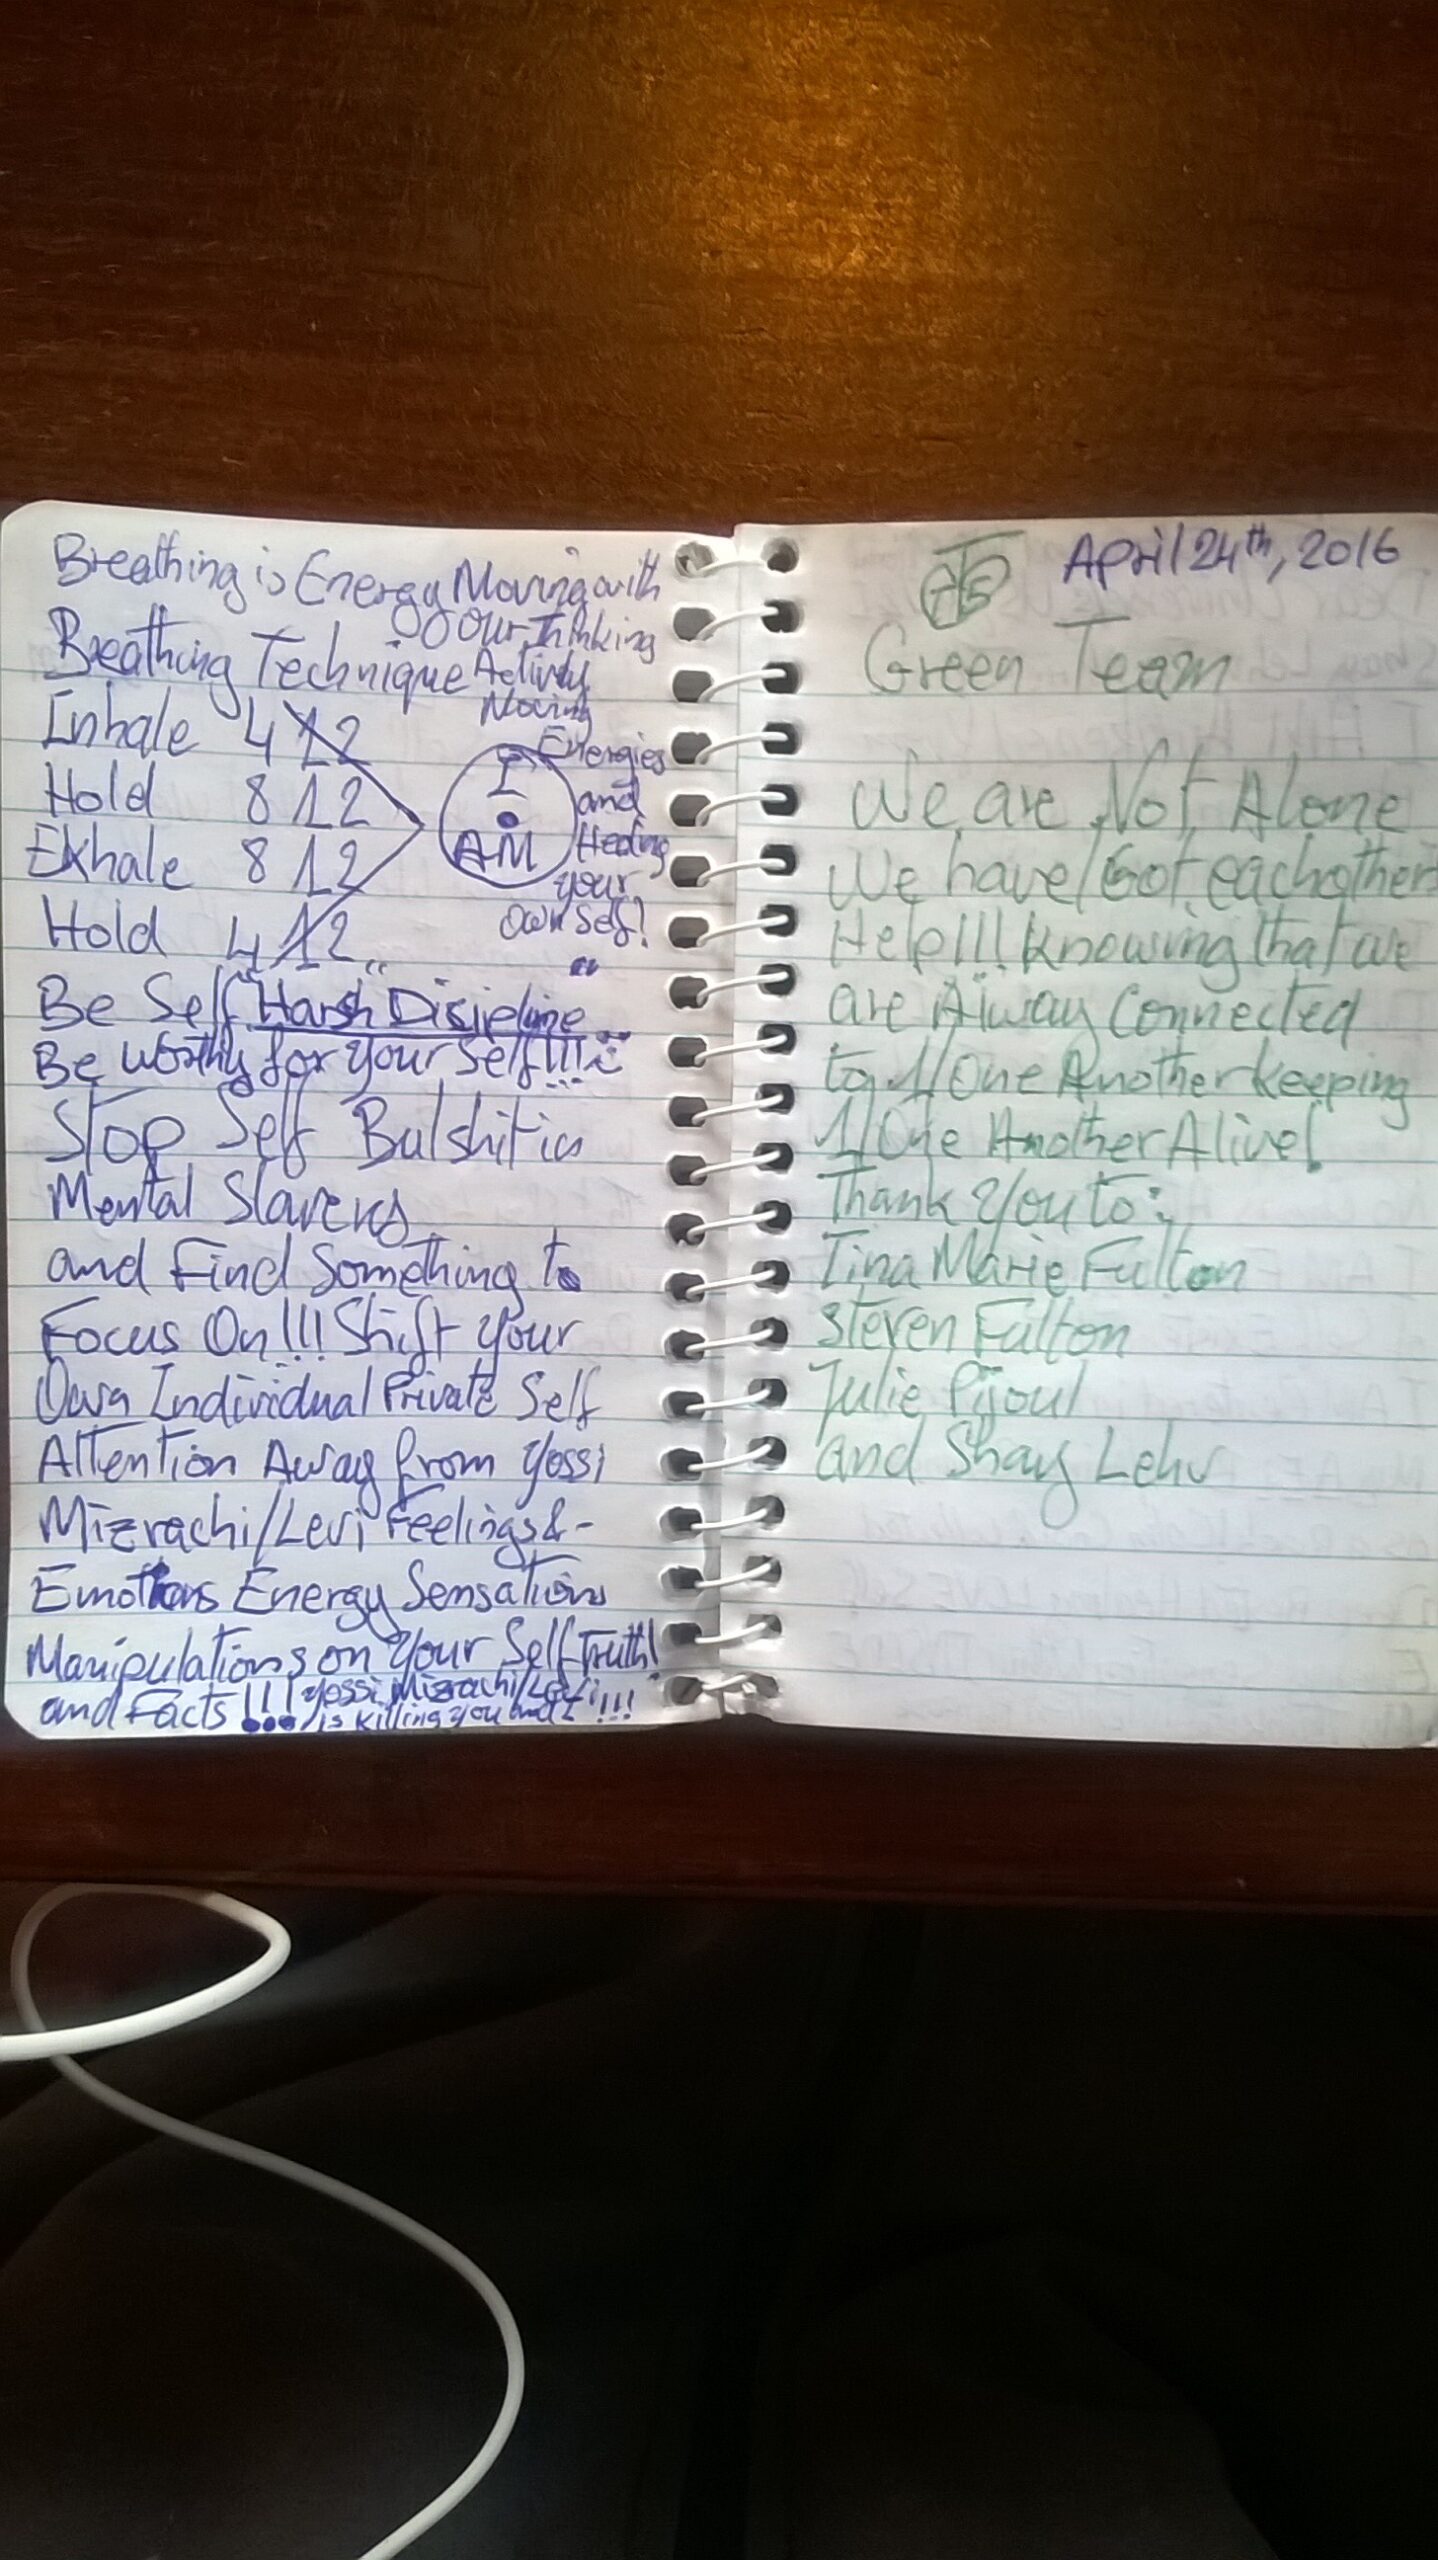 Breathing is Energy Moving with
your Thinking
Breathing Technique Actively
Moving
Energies
and
Healing
your
own self!
Inhale 4 12
Hold 8 12
Exhale 8 12
Hold 4 12
I
AM
Be Self "Harsh Disipeline"
Be worthy for your self!!!
Stop Self Bulshit in
Mental Slavery
and Find Something to
Focus On!!! Shift your
Own Individual Private Self
Attention Away from Yossi
Mizrachi/Levi Feelings &-
Emotions Energy Sensations
Manipulations on Your Self Truth!
and Facts!!! Yossi Mizrachi/Levi
is killing you !!!
April 24th, 2016
Green Team
We are Not Alone
We have/Got eachother
Help!!! Knowing that we
are Alway Connected
to 1/One Another keeping
1/One Another Alive!
Thank You to:
Tina Marie Fulton
Steven Fulton
Julie Pijoul
and Shay Lehv